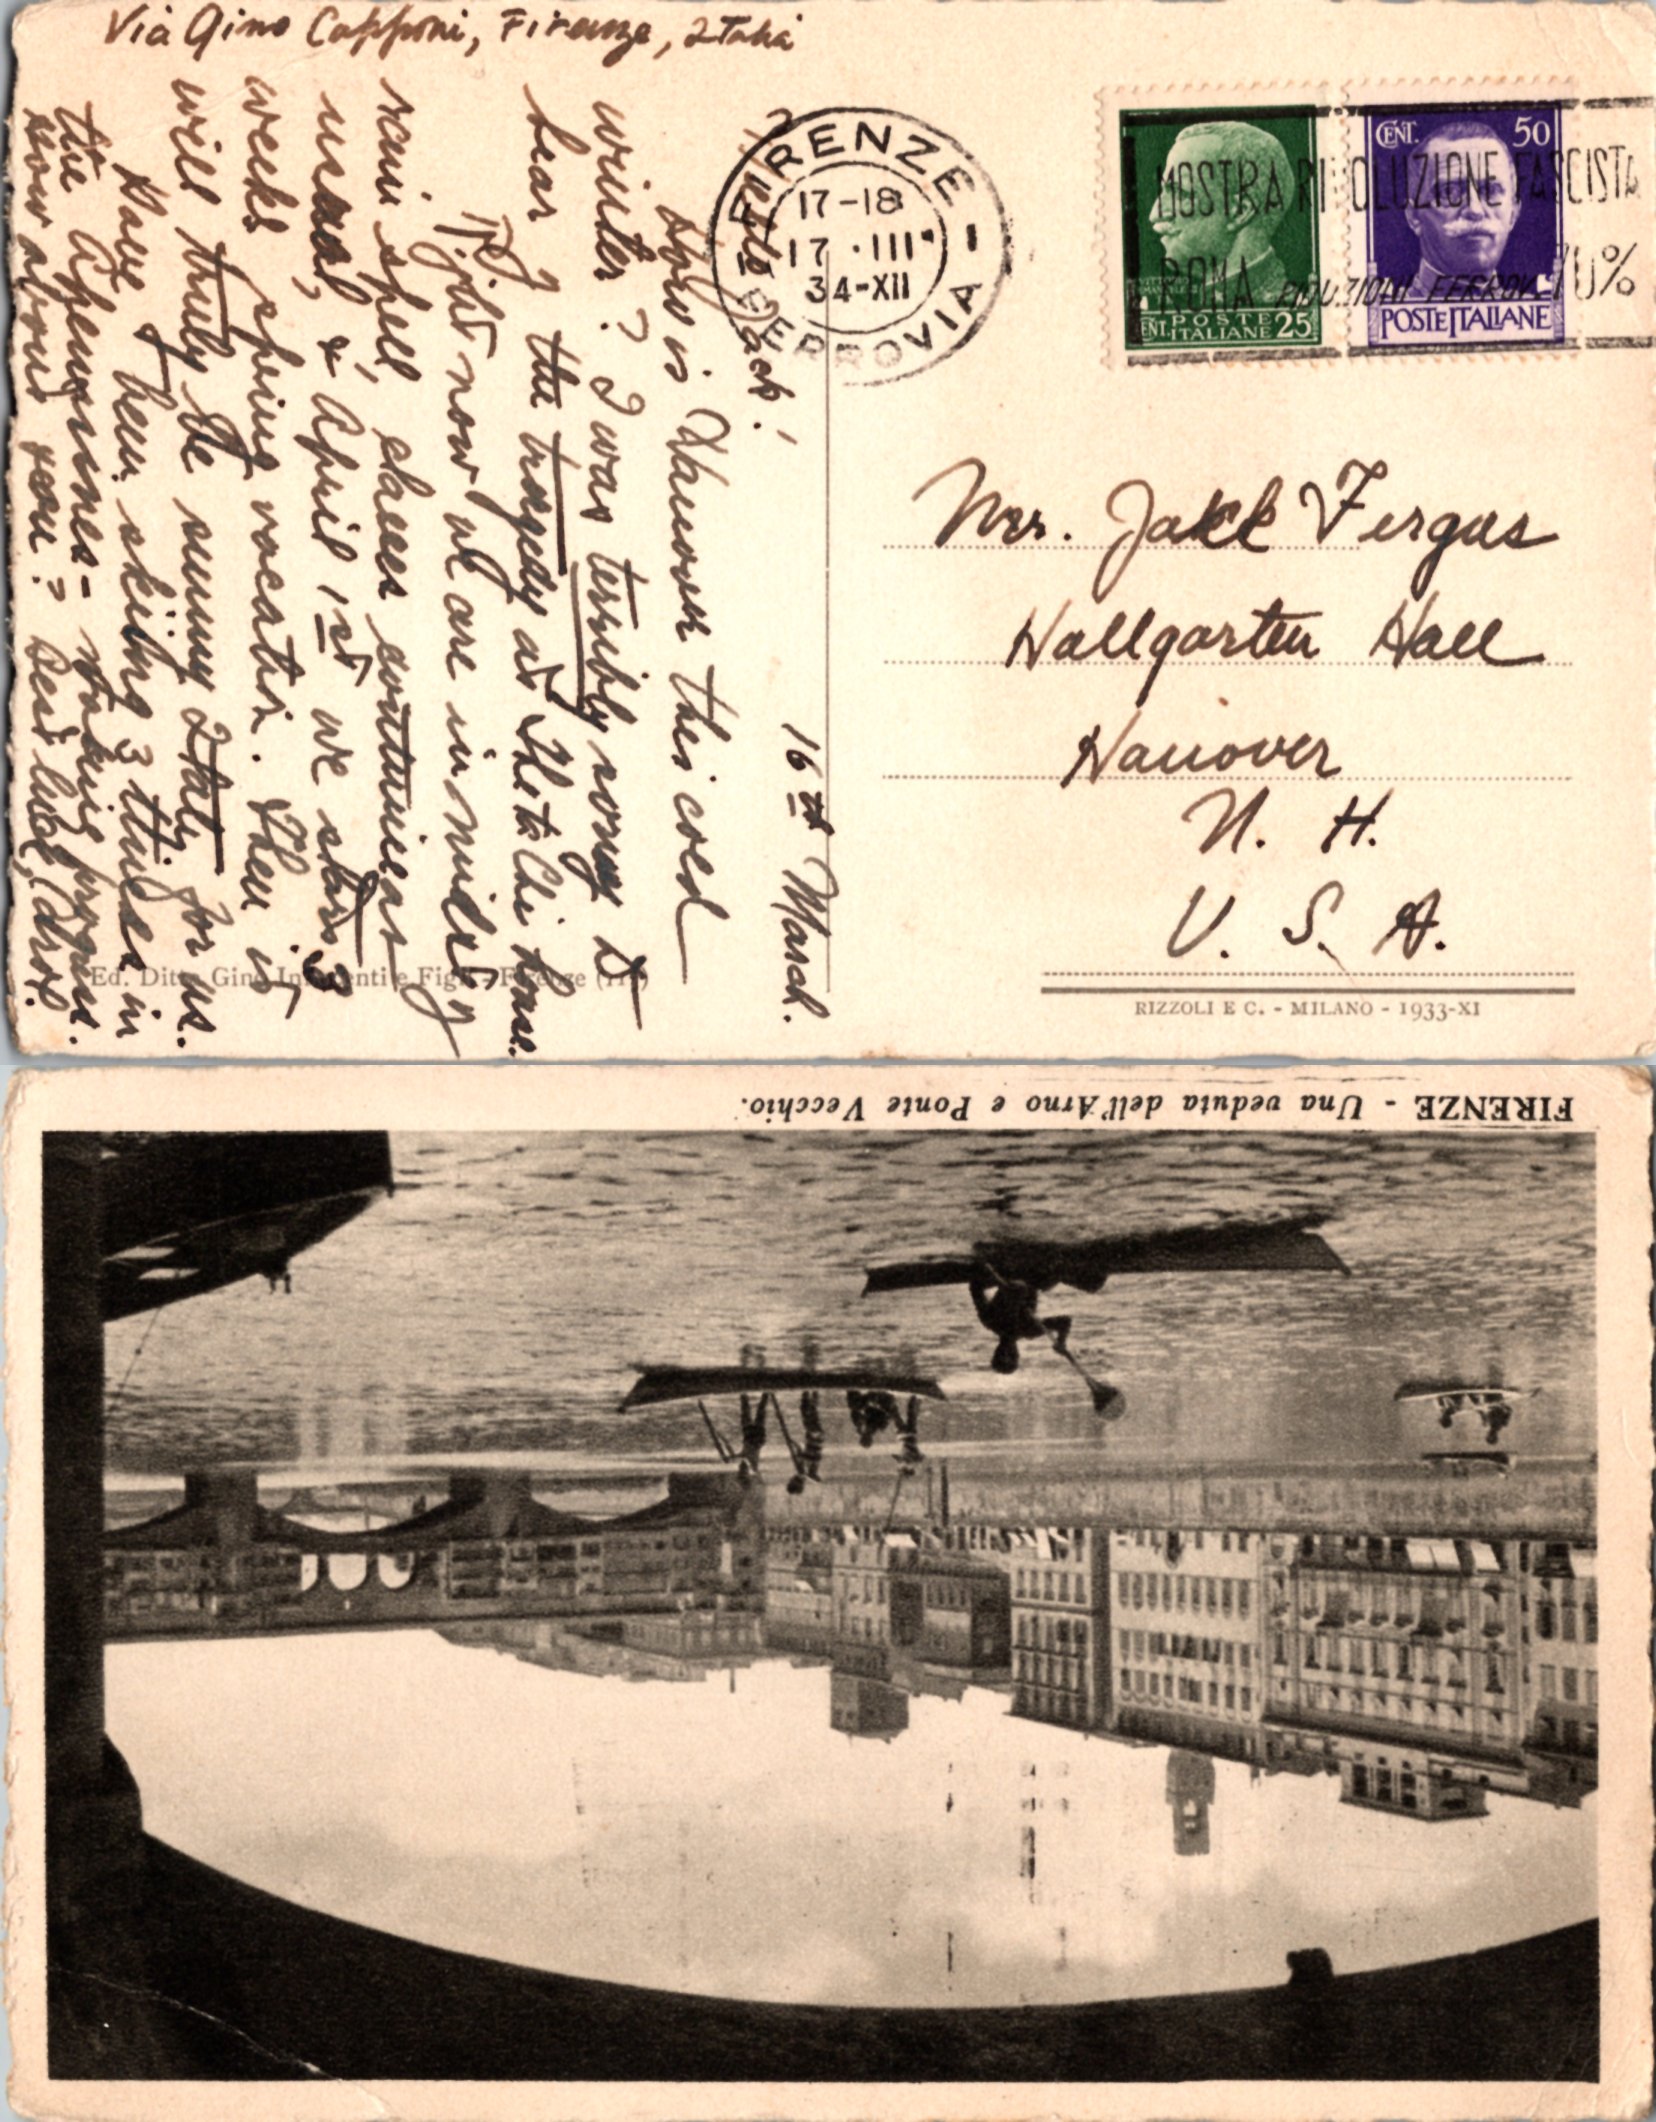 Via Gino Capponi, Firenze, Italia
16th March.
Hello Jack!
How is Hanover this cold
winter? I was terribly sorry to
hear of the tragedy at Theta Chi house.
Right now we are in midst of
rain spell, classes continue as
usual, & April 1st we start 3
weeks spring vacation. Then it
will truly be sunny Italy for us.
Have been skiing 3 times in
the Apennines - making progress.
How about you? Best luck,
FIRENZE
FERROVIA
17-18
17 · III
34-XII
MOSTRA RIVOLUZIONE FASCISTA
ROMA RIDUZIONI FERROV. 70%
CENT. POSTE ITALIANE 25
CENT. 50
POSTE ITALIANE
Mr. Jack Fergus
Hallgarten Hall
Hanover
N. H.
U. S. A.
Ed. Ditta Gino Innocenti e Figli - Firenze
RIZZOLI E C. - MILANO - 1933-XI
FIRENZE - Una veduta dell'Arno e Ponte Vecchio.